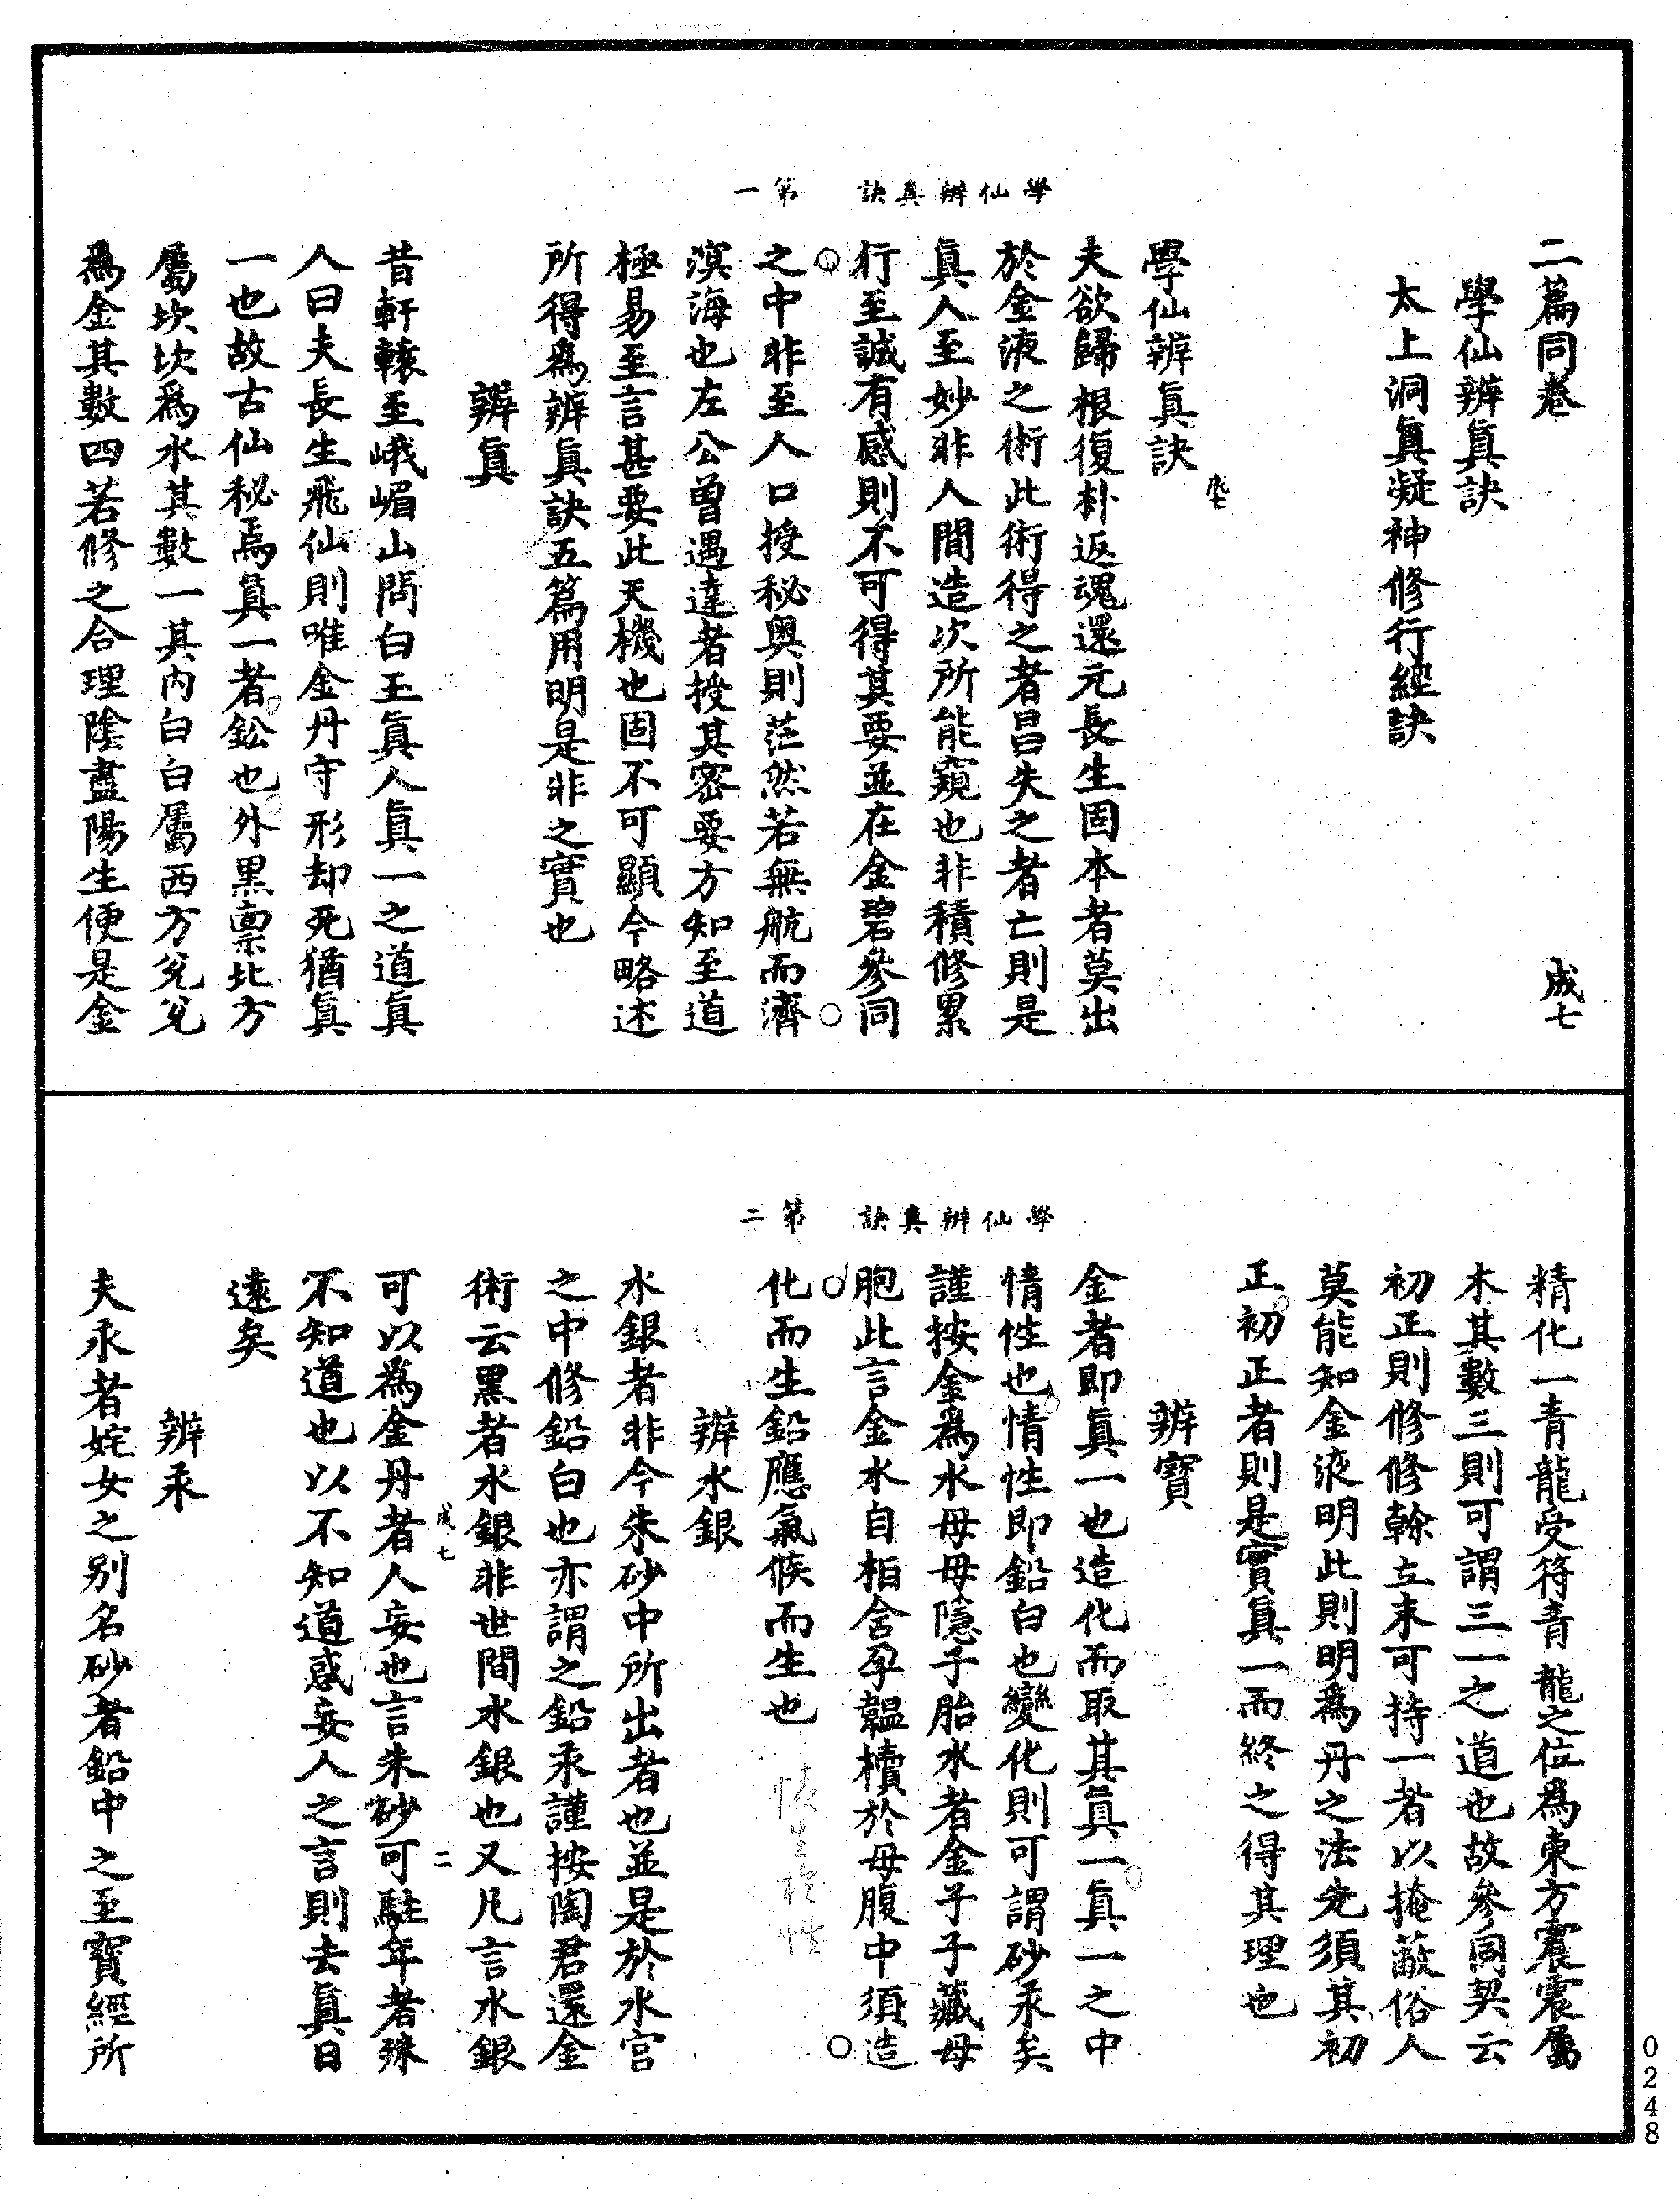 二篇同卷　成七
學仙辨真訣
太上洞真凝神修行經訣
學仙辨真訣　成七
夫欲歸根復朴返魂還元長生固本者莫出
於金液之術此術得之者昌失之者亡則是
真人至妙非人間造次所能窺也非積修累
行至誠有感則不可得其要並在金碧參同
學仙辨真訣　第一
之中非至人口授秘奥則茫然若無航而濟
溟海也左公曾遇達者授其密要方知至道
極易至言甚要此天機也固不可顯今略述
所得為辨真訣五篇用明是非之實也
辨真
昔軒轅至峨嵋山問白玉真人真一之道真
人曰夫長生飛仙則唯金丹守形却死猶真
一也故古仙秘焉真一者鈆也外黒禀北方
屬坎坎為水其數一其内白白屬西方兊兊
為金其數四若修之合理陰盡陽生便是金
精化一青龍受符青龍之位為東方震震屬
木其數三則可謂三一之道也故參同契云
初正則修修幹立末可持一者以掩蔽俗人
莫能知金液明此則明為丹之法先須其初
正初正者則是實真一而終之得其理也
辨寶
金者即真一也造化而取其真一真一之中
情性也情性即鉛白也變化則可謂砂汞矣
謹按金為水母母隱子胎水者金子子藏母
胞此言金水自相含孕韞櫝於母腹中須造
學仙辨真訣　第二
化而生鉛應氣候而生也
辨水銀
水銀者非今朱砂中所出者也並是於水宫
之中修鉛白也亦謂之鉛汞謹按陶君還金
術云黒者水銀非世間水銀也又凡言水銀
成七　二
可以為金丹者人妄也言朱砂可駐年者殊
不知道也以不知道惑妄人之言則去真日
遠矣
辨汞
夫汞者姹女之别名砂者鉛中之至寶經所
0248